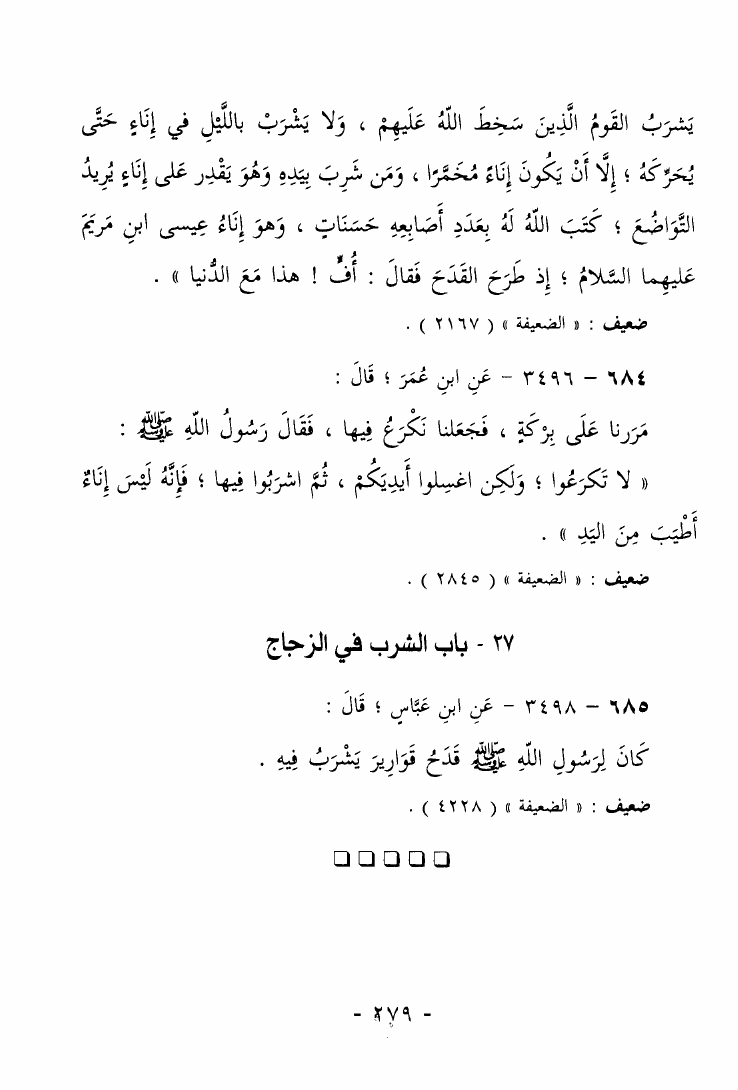 يَشرَبُ القَومُ الَّذِينَ سَخِطَ اللّهُ عَلَيهِمْ ، وَلا يَشْرَبْ باللَّيْلِ في إِنَاءٍ حَتَّى
يُحَرِّكَهُ ؛ إِلَّا أَنْ يَكُونَ إِنَاءً مُخَمَّرًا ، وَمَن شَرِبَ بِيَدِهِ وَهُوَ يَقْدِر عَلى إِنَاءٍ يُرِيدُ
التَّوَاضُعَ ؛ كَتَبَ اللّهُ لَهُ بِعَدَدِ أَصَابِعِهِ حَسَنَاتٍ ، وَهوَ إِنَاءُ عِيسى ابنِ مَريَمَ
عَليهِما السَّلامُ ؛ إِذ طَرَحَ القَدَحَ فَقالَ : أُفٍّ ! هذا مَعَ الدُّنيا » .
ضعيف : « الضعيفة » ( ٢١٦٧ ) .
٦٨٤ – ٣٤٩٦ – عَنِ ابنِ عُمَرَ ؛ قَالَ :
مَرَرنا عَلَى بِرْكَةٍ ، فَجَعَلنا نَكْرَعُ فِيها ، فَقَالَ رَسُولُ اللّهِ ﷺ :
« لا تَكرَعُوا ؛ وَلَكِن اغسِلوا أَيدِيَكُمْ ، ثُمَّ اشرَبُوا فِيها ؛ فَإِنَّهُ لَيْسَ إِنَاءٌ
أَطْيَبَ مِنَ اليَدِ » .
ضعيف : « الضعيفة » ( ٢٨٤٥ ) .
٢٧ - باب الشرب في الزجاج
٦٨٥ – ٣٤٩٨ – عَنِ ابنِ عَبَّاسٍ ؛ قَالَ :
كَانَ لِرَسُولِ اللّهِ ﷺ قَدَحُ قَوَارِيرَ يَشْرَبُ فِيهِ .
ضعيف : « الضعيفة » ( ٤٢٢٨ ) .
❏ ❏ ❏ ❏ ❏
- ٢٧٩ -